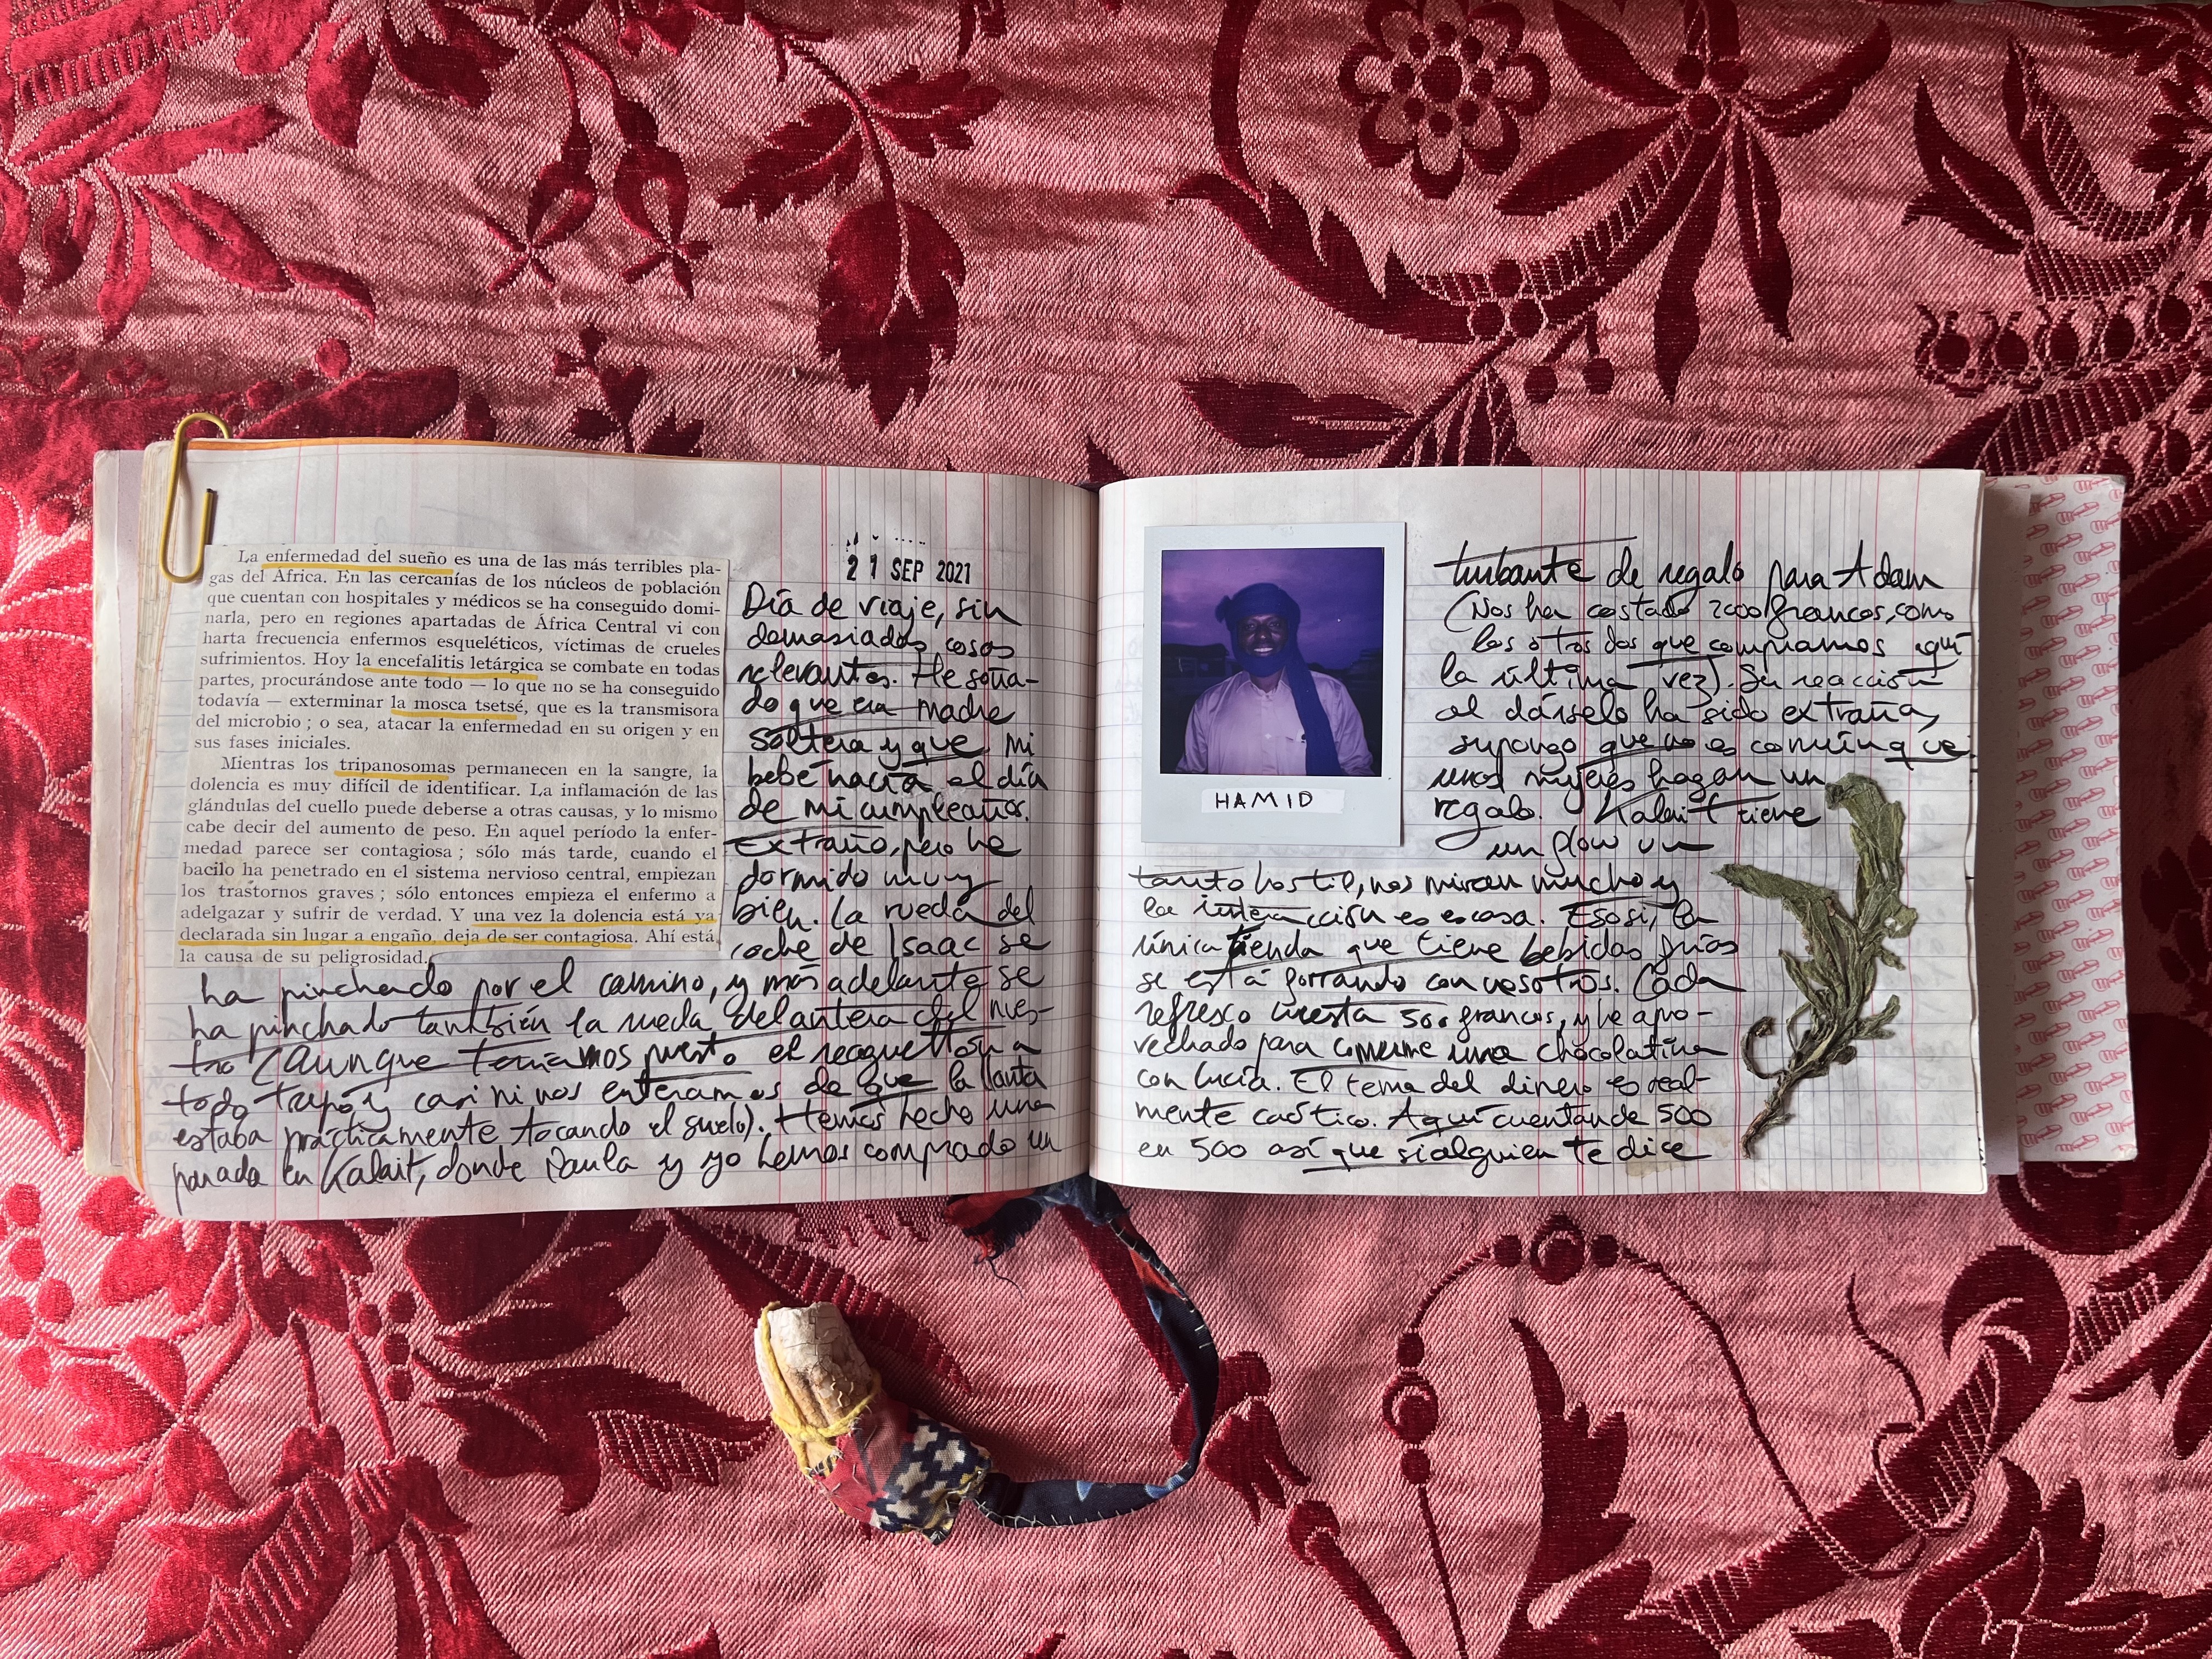 La enfermedad del sueño es una de las más terribles pla-
gas del África. En las cercanías de los núcleos de población
que cuentan con hospitales y médicos se ha conseguido domi-
narla, pero en regiones apartadas de África Central vi con
harta frecuencia enfermos esqueléticos, víctimas de crueles
sufrimientos. Hoy la encefalitis letárgica se combate en todas
partes, procurándose ante todo — lo que no se ha conseguido
todavía — exterminar la mosca tsetsé, que es la transmisora
del microbio ; o sea, atacar la enfermedad en su origen y en
sus fases iniciales.
Mientras los tripanosomas permanecen en la sangre, la
dolencia es muy difícil de identificar. La inflamación de las
glándulas del cuello puede deberse a otras causas, y lo mismo
cabe decir del aumento de peso. En aquel período la enfer-
medad parece ser contagiosa ; sólo más tarde, cuando el
bacilo ha penetrado en el sistema nervioso central, empiezan
los trastornos graves ; sólo entonces empieza el enfermo a
adelgazar y sufrir de verdad. Y una vez la dolencia está ya
declarada sin lugar a engaño, deja de ser contagiosa. Ahí está
la causa de su peligrosidad.
21 SEP 2021
Día de viaje, sin
demasiadas cosas
relevantes. He soña-
do que era madre
soltera y que mi
bebé nacía el día
de mi cumpleaños.
Extraño, pero he
dormido muy
bien. La rueda del
coche de Isaac se
ha pinchado por el camino, y más adelante se
ha pinchado también la rueda delantera del nues-
tro (aunque teníamos puesto el reaguetton a
todo trapo y casi ni nos enteramos de que la llanta
estaba prácticamente tocando el suelo). Hemos hecho una
parada en Kalait, donde Paula y yo hemos comprado un
HAMID
turbante de regalo para Adam
(Nos ha costado 2000 francos, como
los otros dos que compramos aquí
la última vez). Su reacción
al dárselo ha sido extraña,
supongo que no es común que
unas mujeres hagan un
regalo. Kalait tiene
un flow un
tanto hostil, nos miran mucho y
la interacción es escasa. Eso sí, la
única tienda que tiene bebidas frías
se está forrando con nosotros. Cada
refresco cuesta 500 francos, y he apro-
vechado para comerme una chocolatina
con Lucía. El tema del dinero es real-
mente caótico. Aquí cuentan de 500
en 500 así que si alguien te dice